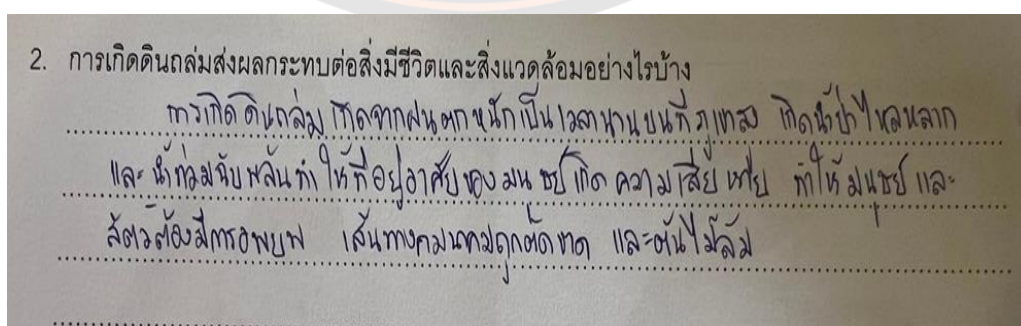 2. การเกิดดินถล่มส่งผลกระทบต่อสิ่งมีชีวิตและสิ่งแวดล้อมอย่างไรบ้าง
การเกิดดินถล่ม เกิดจากฝนตกหนักเป็นเวลานานบนที่ภูเขาสูง เกิดน้ำป่าไหลหลาก
และ น้ำท่วมฉับพลันทำให้ที่อยู่อาศัยของมนุษย์เกิดความเสียหาย ทำให้มนุษย์และ
สัตว์ต้องมีการอพยพ เส้นทางคมนาคมถูกตัดขาด และต้นไม้ล้ม